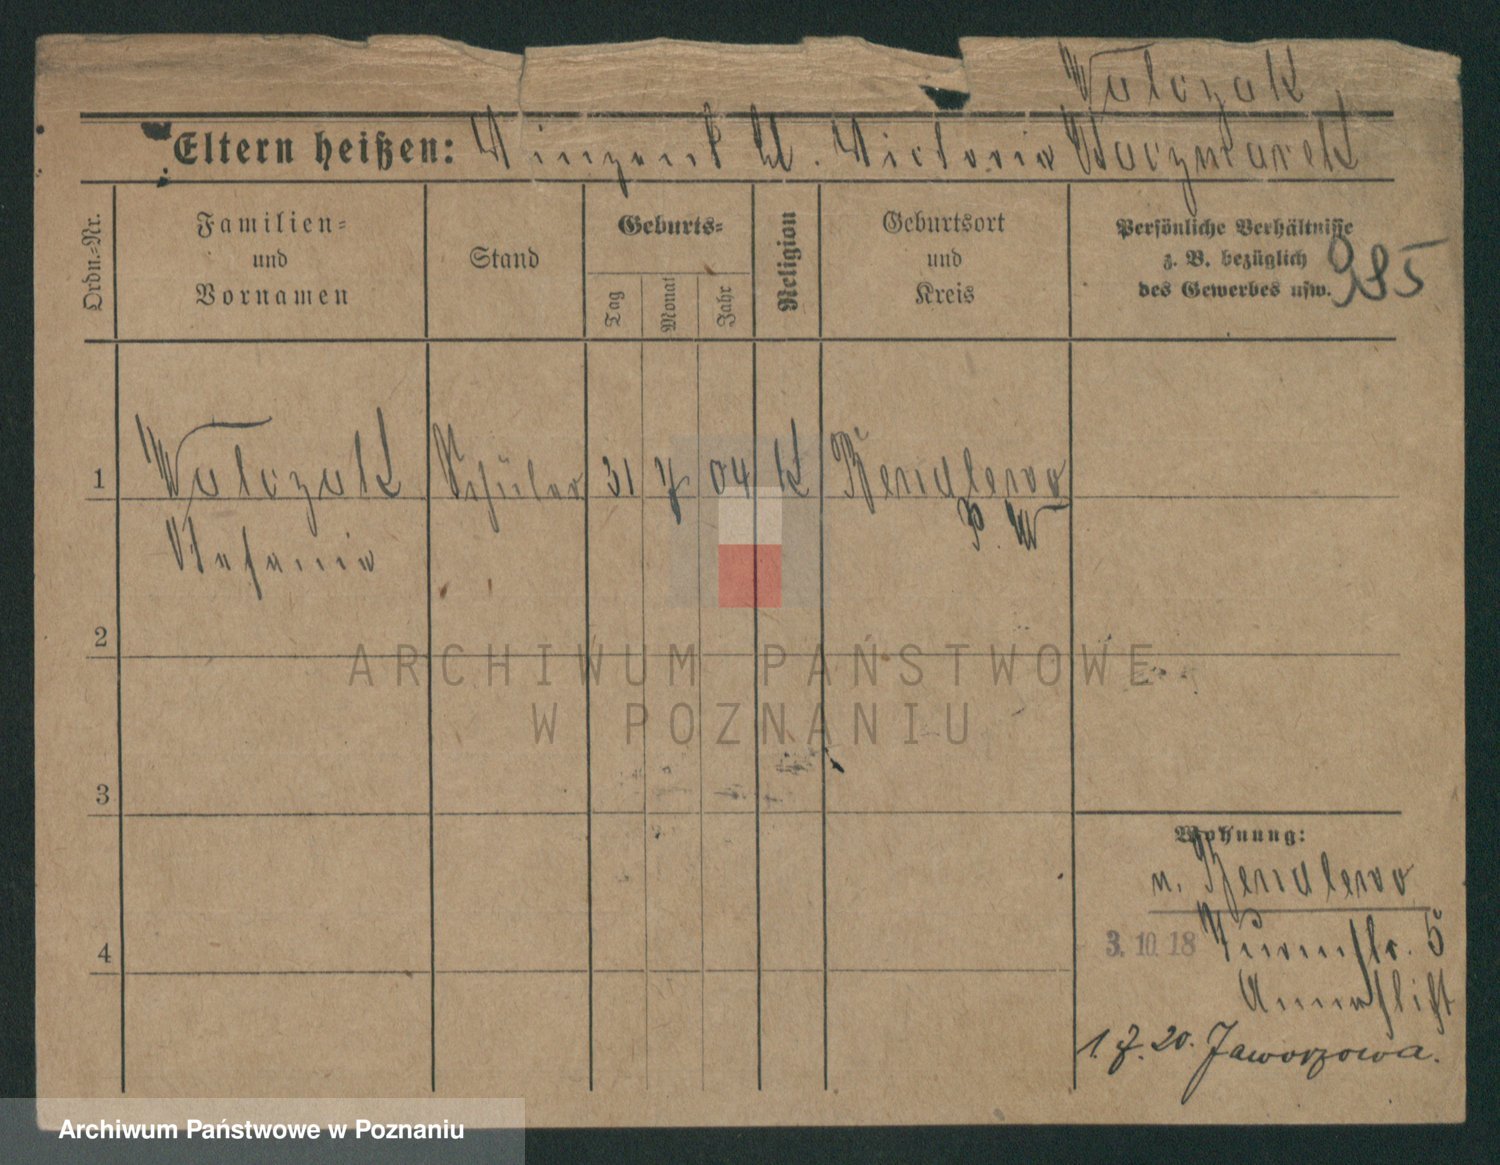 Walczak
Eltern heißen: Vinzent W. Victoria Kaczmarek
Ordn.-Nr.
Familien-
und
Vornamen
Stand
Geburts-
Tag
Monat
Jahr
Religion
Geburtsort
und
Kreis
Persönliche Verhältnisse
z. B. bezüglich
des Gewerbes usw.
985
1 Walczak Schüler 31 7 04 K Bendlewo
P. W
Stefania
2
3
4
Wohnung:
n. Bendlewo
3. 10. 18 Turmstr. 5
Annastift
1. 7. 20. Jaworzowa.
ARCHIWUM PAŃSTWOWE
W POZNANIU
Archiwum Państwowe w Poznaniu